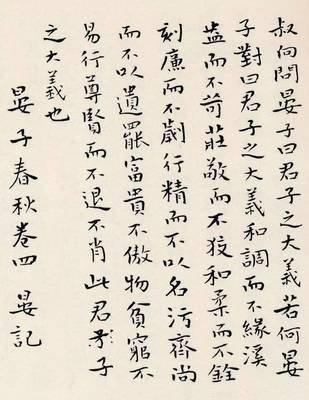 叔向問晏子曰君子之大義若何晏
子對曰君子之大義和調而不緣溪
盎而不苛莊敬而不狡和柔而不銓
刻廉而不劌行精而不以名污齊尚
而不以遺罷富貴不傲物貧窮不
易行尊賢而不退不肖此君子
之大義也
晏子春秋卷四 晏記